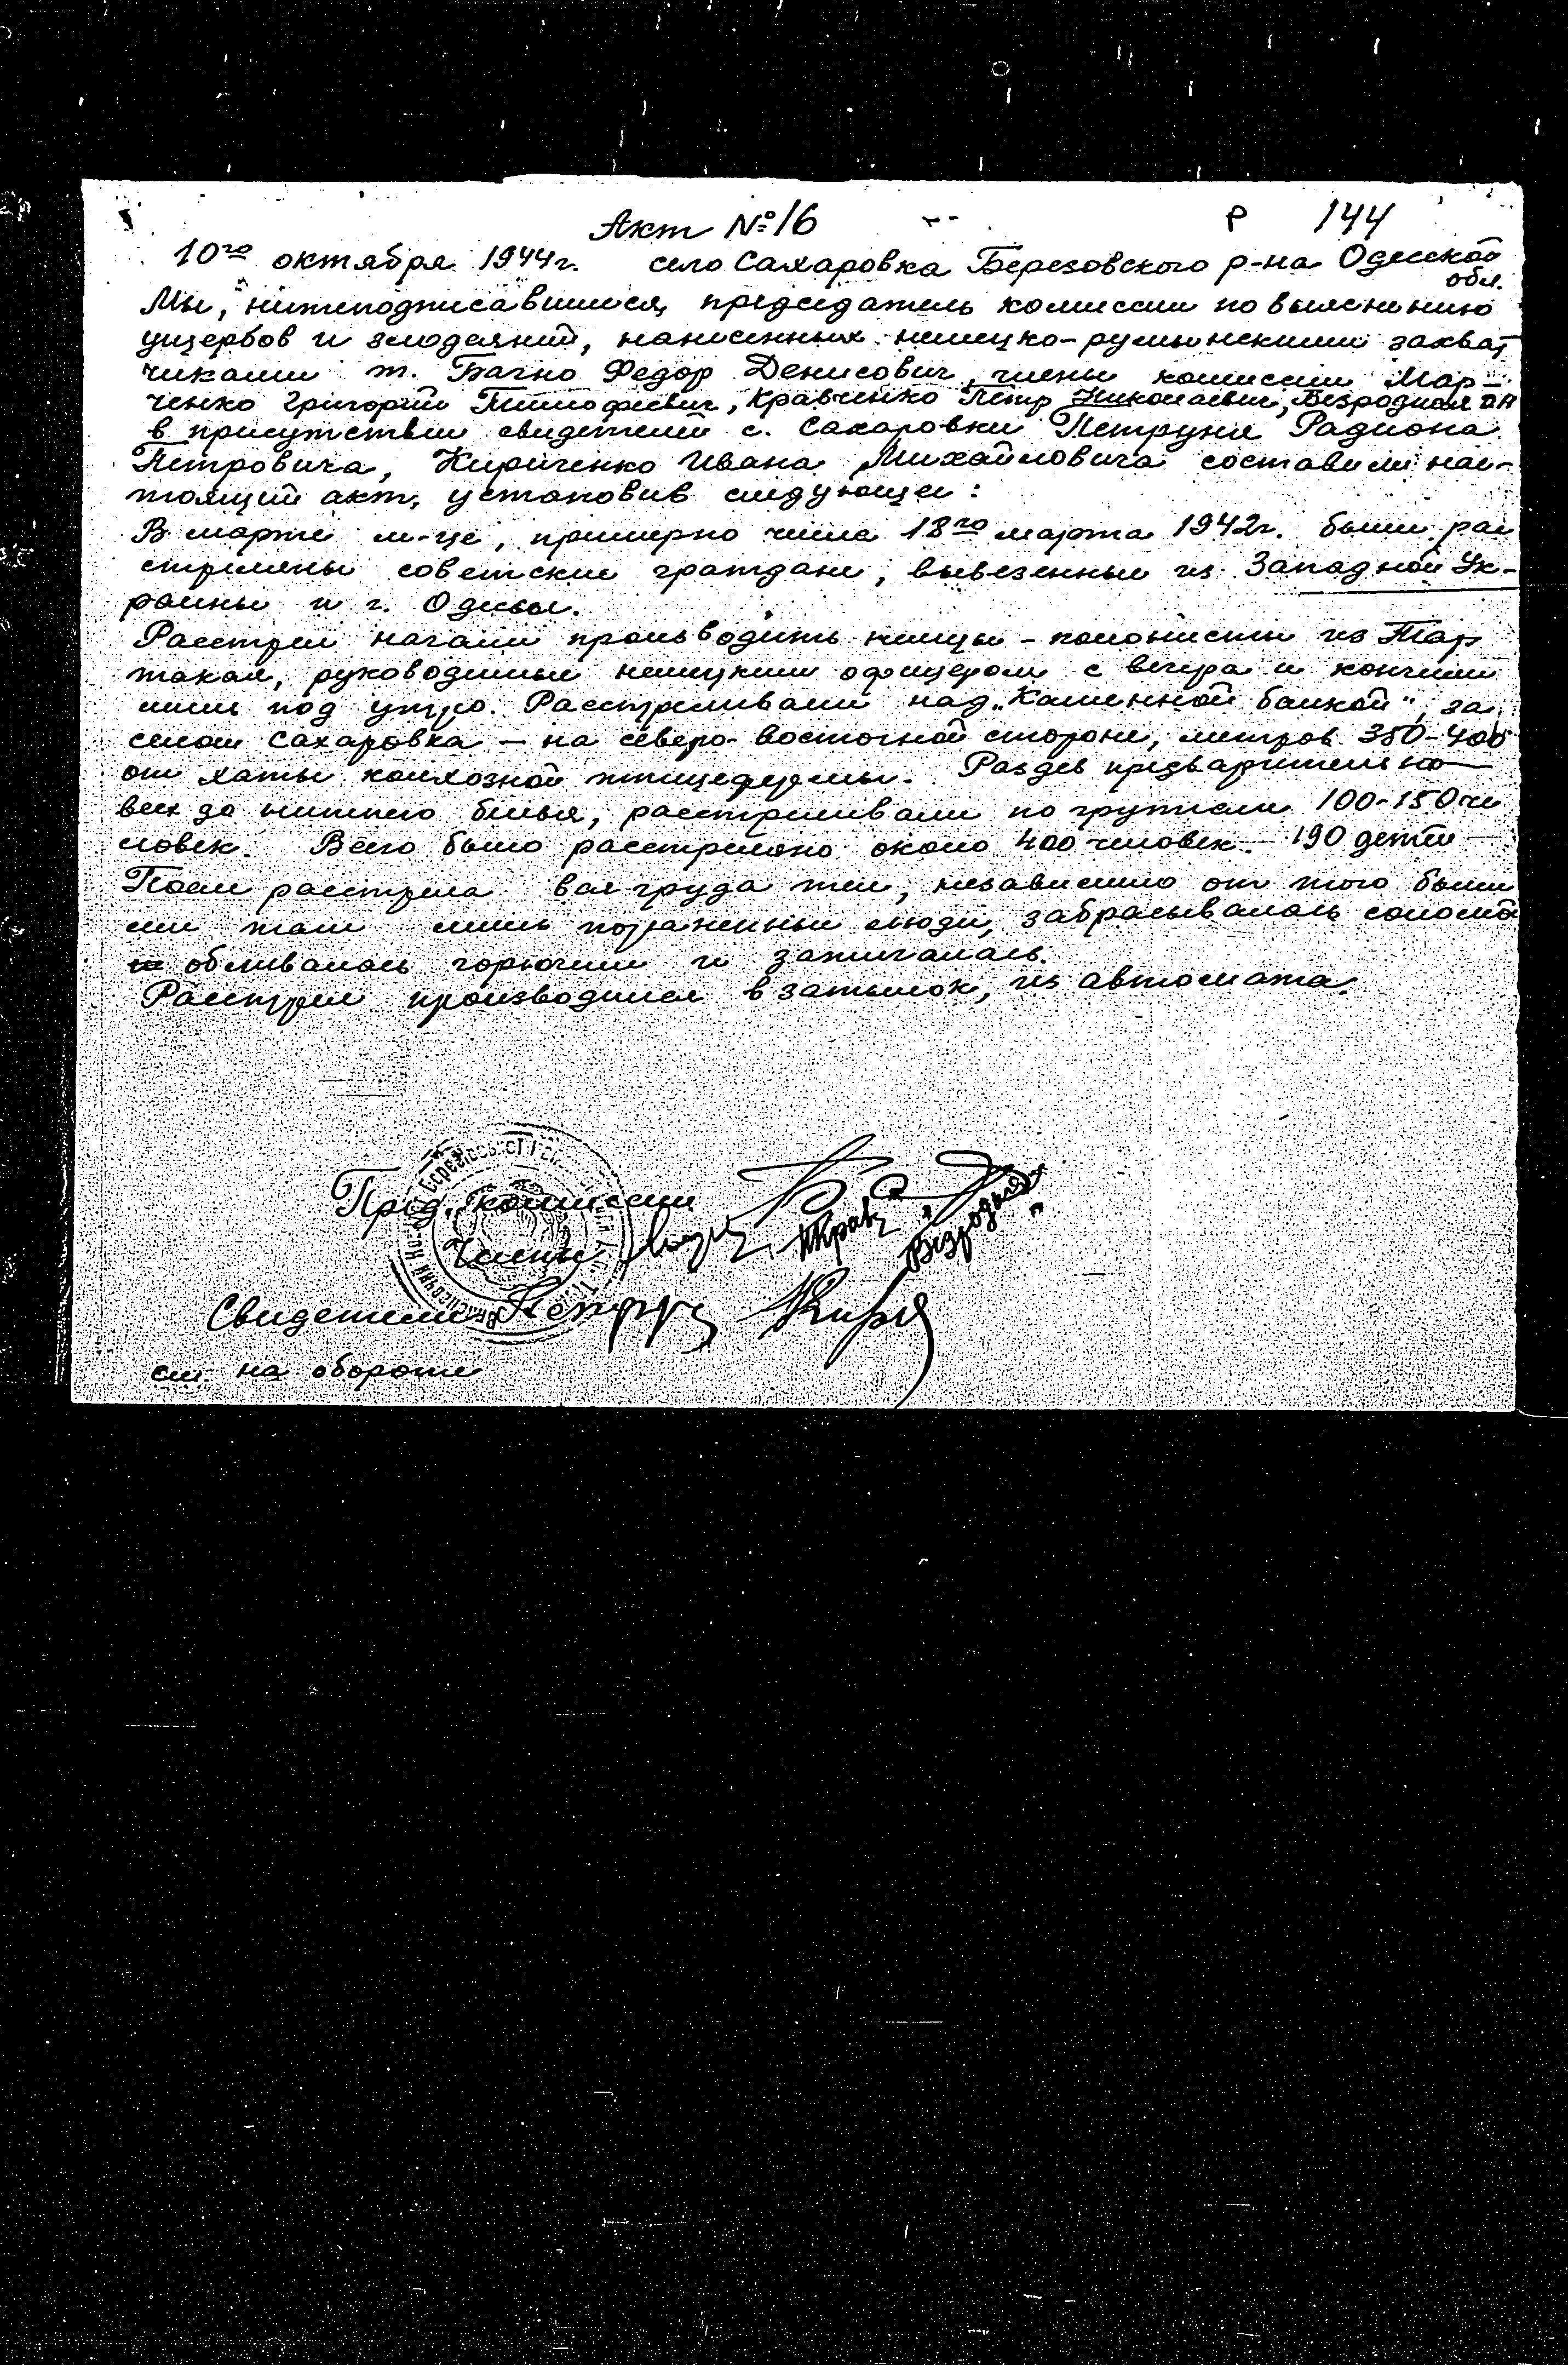 Акт №16 Р 144
10го октября 1944г. село Сахаровка Березовского р-на Одесской
обл.
Мы, нижеподписавшиеся, председатель комиссии по выяснению
ущербов и злодеяний, нанесенных немецко-румынскими захват
чиками т. Багно Федор Денисович, члены комиссии Мар-
ченко Григорий Тимофеевич, Кравченко Петр Николаевич, Безродная
в присутствии свидетелей с. Сахаровки Петруня Радиона
Петровича, Кириченко Ивана Михайловича составили нас-
тоящий акт, установив следующее:
В марте м-це, примерно числа 18го марта 1942г. были рас
стреляны советские граждане, вывезенные из Западной Ук-
раины и г. Одессы.
Расстрел начали производить немцы-колонисты из Тар
такая, руководимые немецким офицером с вечера и кончили
лишь под утро. Расстреливали над „Каменной балкой", за
селом Сахаровка – на северо-восточной стороне, метров 350-400
от хаты колхозной птицефермы. Раздев предварительно
всех до нижнего белья, расстреливали по группам 100-150 че
ловек. Всего было расстреляно около 400 человек. 190 детей
После расстрела вся груда тел, независимо от того были
ли там лишь пораненные люди, забрасывалась соломой
обливалась горючим и зажигалась.
Расстрел производился в затылок, из автомата.
Пред. комиссии
Члены Кравч Безродная
Свидетели Петрун Кирич
см. на обороте